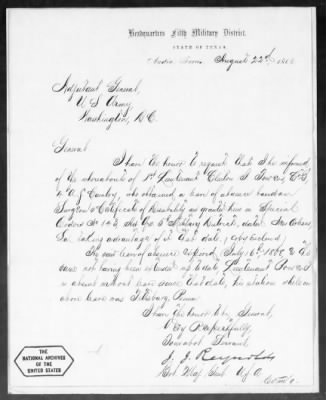 Headquarters Fifth Military District,
STATE OF TEXAS,
Austin, Texas August 22d, 186
Adjutant General,
U S Army
Washington, D.C.
General
I have the honor to request that I be informed
of the whereabouts of 1st Lieutenant
Cavalry, who obtained a leave of absence
Surgeon's Certificate of Disability as granted him in Special
Orders No Military District, dated New Orleans
La. taking advantage of it that date,
The said leave of absence expired July 16th & the
same not having been extended up to date Lieutenant
is absent without leave since that date, his station while on
above leave was Pittsburg, Penna
I have the honor to be, General,
Very Respectfully,
Your obdt Servant
J. J. Reynolds
Bvt Maj. Genl. U.S.A.
Comd'g.
THE
NATIONAL ARCHIVES
OF THE
UNITED STATES